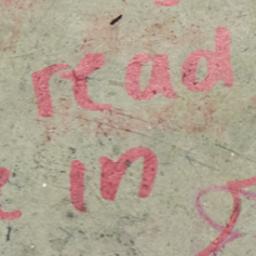 read
in